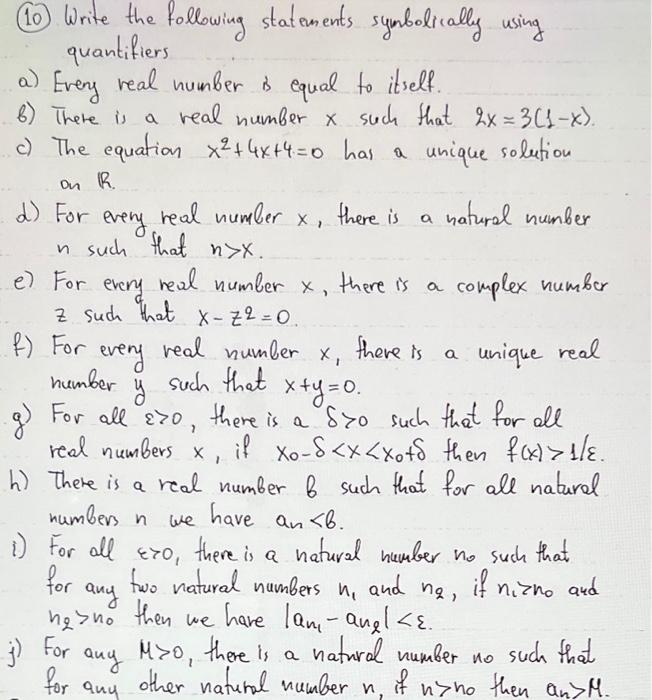 (10) Write the following statements symbolically using
quantifiers
a) Every real number is equal to itself.
b) There is a real number x such that 2x = 3(1-x).
c) The equation x²+4x+4=0 has a unique solution
on ℝ.
d) For every real number x, there is a natural number
n such that n>x.
e) For every real number x, there is a complex number
z such that x - z² = 0
f) For every real number x, there is a unique real
number y such that x+y=0.
g) For all ε>0, there is a δ>0 such that for all
real numbers x, if x₀-δ<x<x₀+δ then f(x)>1/ε.
h) There is a real number b such that for all natural
numbers n we have aₙ<b.
i) For all ε>0, there is a natural number n₀ such that
for any two natural numbers n₁ and n₂, if n₁>n₀ and
n₂>n₀ then we have |aₙ₁ - aₙ₂| < ε.
j) For any M>0, there is a natural number n₀ such that
for any other natural number n, if n>n₀ then aₙ>M.